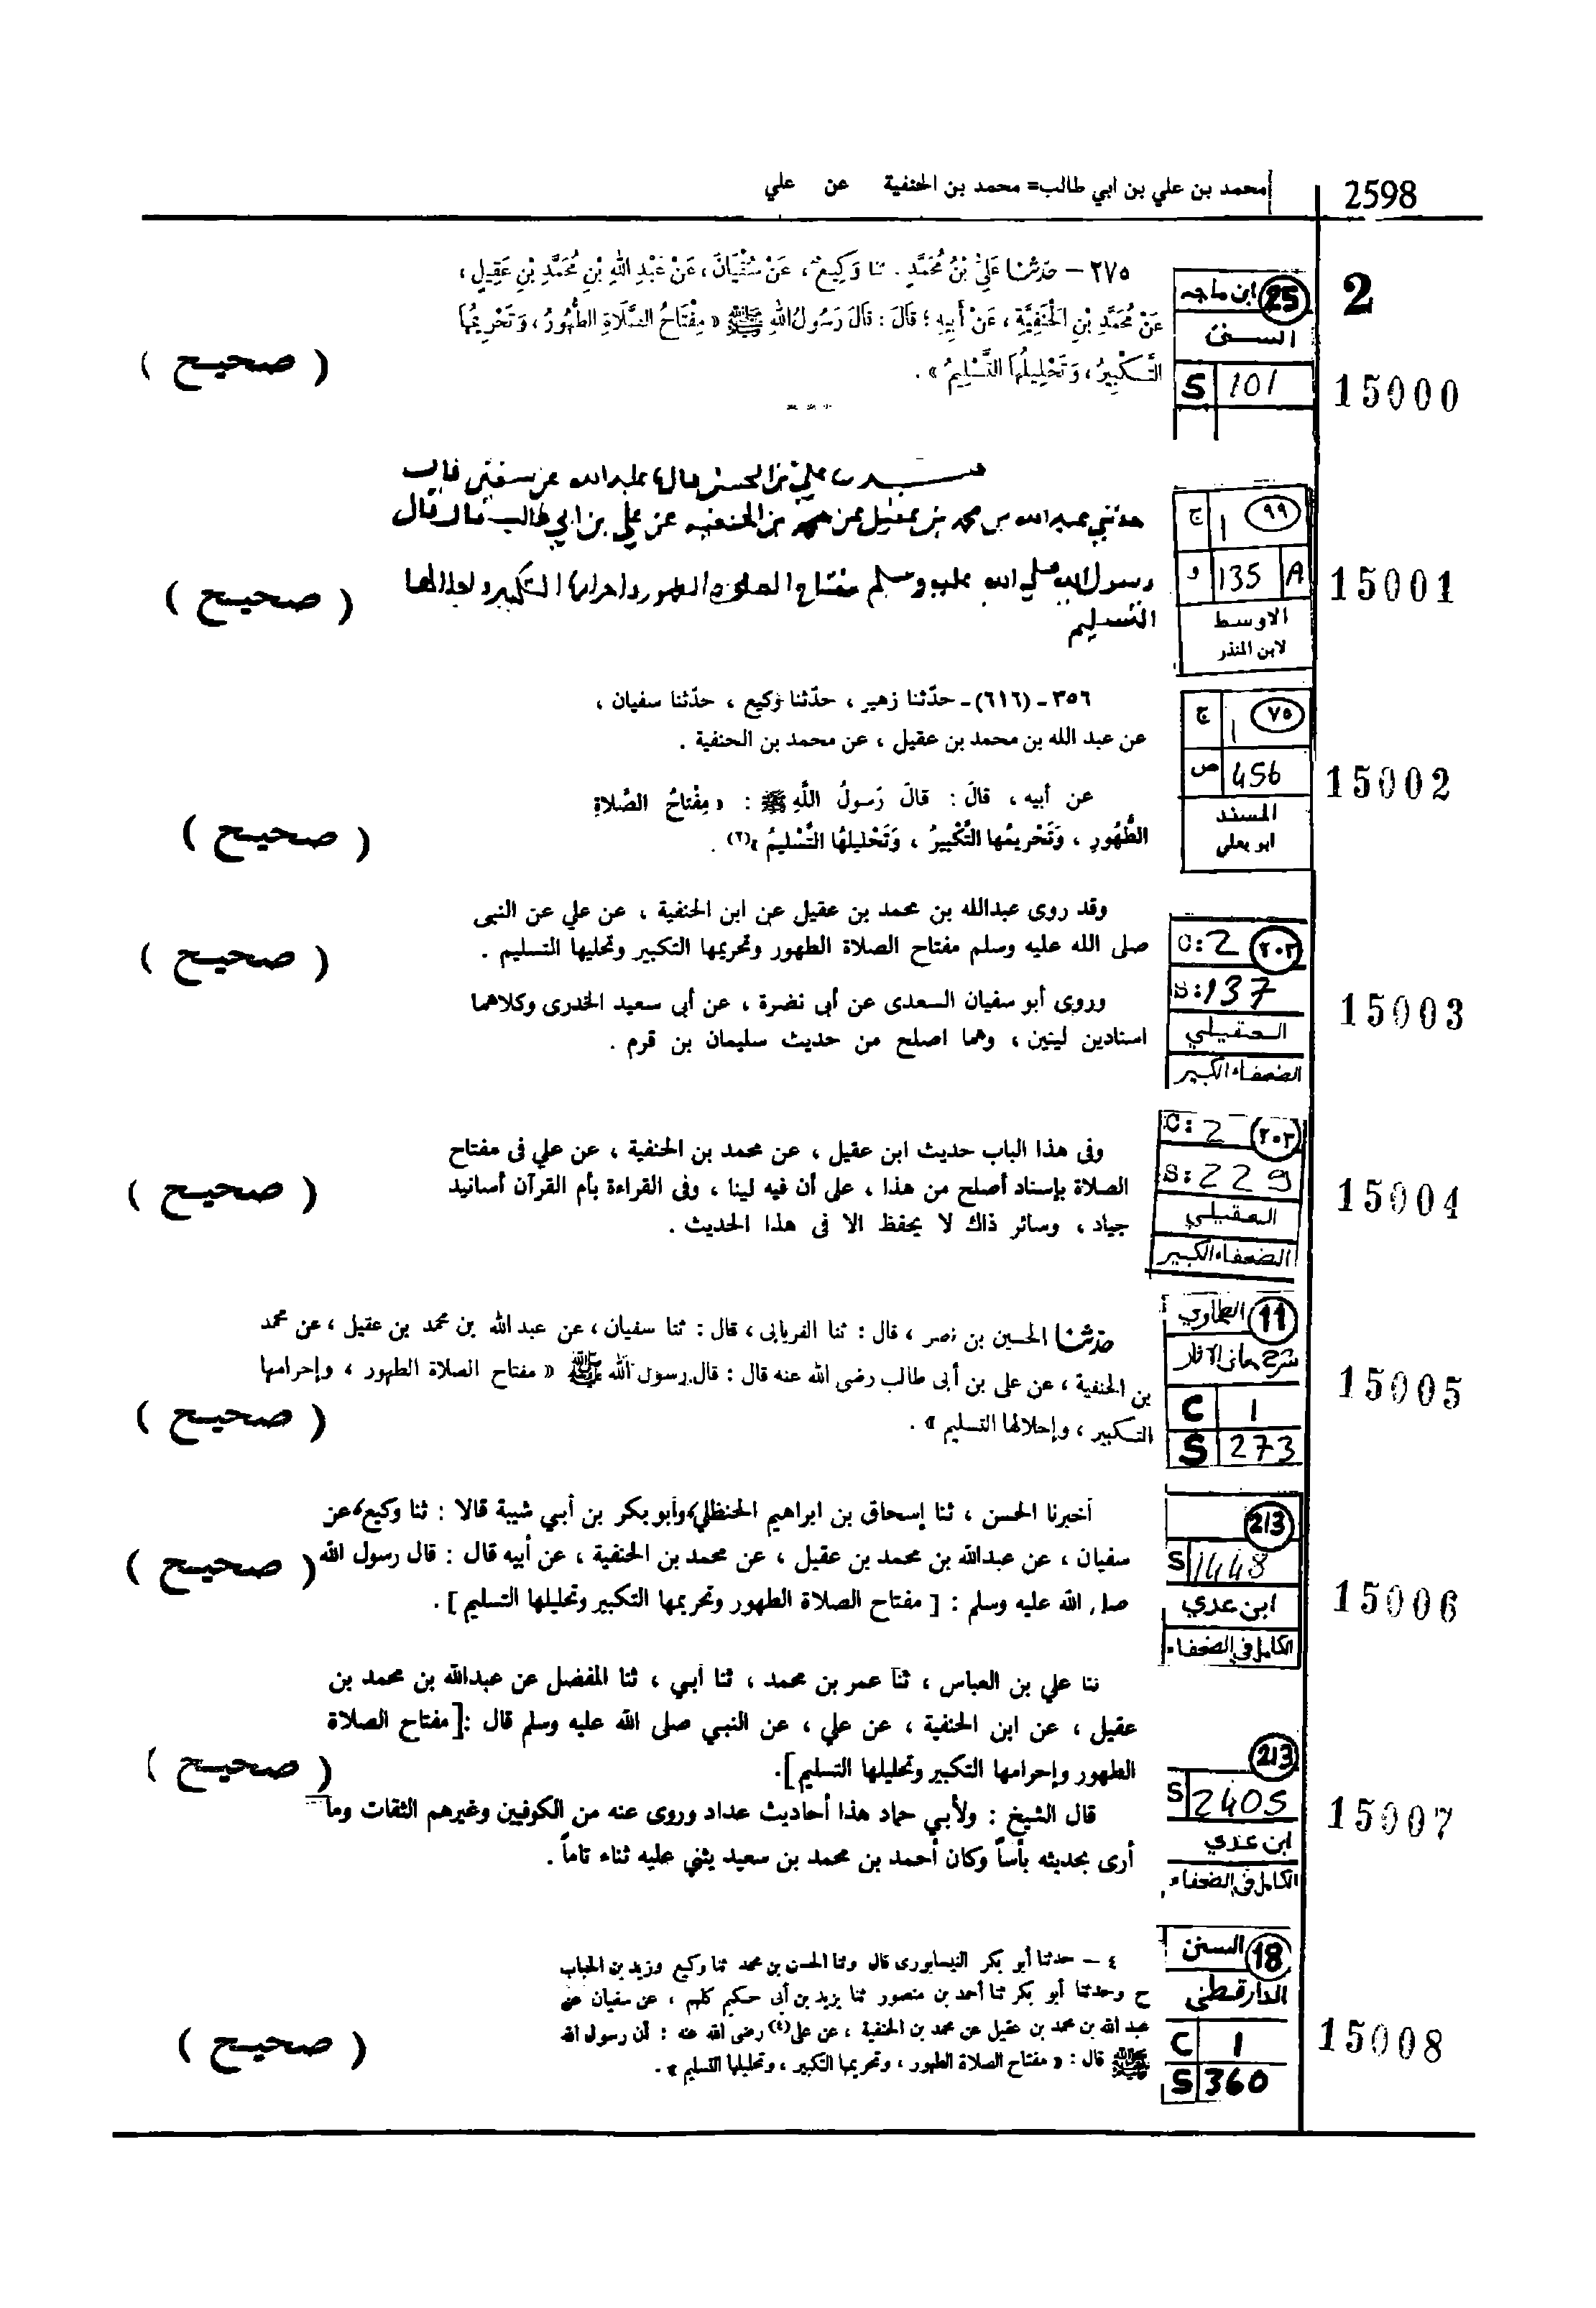 2598 محمد بن علي بن ابي طالب= محمد بن الحنفية عن علي
2
25 ابن ماجه
السنن
S 101
15000
٢٧٥ – حَدَّثَنَا عَلِيُّ بْنُ مُحَمَّدٍ . ثنا وَكِيعٌ ، عَنْ سُفْيَانَ ، عَنْ عَبْدِ اللهِ بْنِ مُحَمَّدِ بْنِ عَقِيلٍ ،
عَنْ مُحَمَّدِ بْنِ الْحَنَفِيَّةِ ، عَنْ أَبِيهِ ؛ قَالَ : قَالَ رَسُولُ اللهِ ﷺ « مِفْتَاحُ الصَّلَاةِ الطُّهُورُ ، وَتَحْرِيمُهَا
التَّكْبِيرُ ، وَتَحْلِيلُهَا التَّسْلِيمُ » .
( صحيح )
٩٩ ج ١
A 135 و
الاوسط
لابن المنذر
15001
علي بن الحسن قال ثنا عبدالله عن سفين قال
حدثني عبدالله بن محمد بن عقيل عن محمد بن الحنفيه عن علي بن ابي طالب قال قال
رسول الله صلي الله عليه وسلم مفتاح الصلوة الطهور واحرامها التكبير واحلالها
التسليم
( صحيح )
٧٥ ج ١
ص 456
المسند
ابو يعلي
15002
٣٥٦ - (٦١٦) - حدّثنا زهير ، حدّثنا وكيع ، حدّثنا سفيان ،
عن عبد الله بن محمد بن عقيل ، عن محمد بن الحنفية .
عن أبيه ، قالَ : قالَ رَسولُ اللَّهِ ﷺ : « مِفْتاحُ الصَّلاةِ
الطُّهُورِ ، وَتَحْريمُها التَّكْبيرُ ، وَتَحْليلُها التَّسْليمُ »(٢) .
( صحيح )
٢٠٣ C: 2
S: 137
العقيلي
الضعفاء الكبير
15003
وقد روى عبدالله بن محمد بن عقيل عن ابن الحنفية ، عن علي عن النبى
صلى الله عليه وسلم مفتاح الصلاة الطهور وتحريمها التكبير وتحليها التسليم .
( صحيح )
وروى أبو سفيان السعدى عن أبى نضرة ، عن أبى سعيد الخدرى وكلاهما
اسنادين لينين ، وهما اصلح من حديث سليمان بن قرم .
٢٠٣ C: 2
S: 229
العقيلي
الضعفاء الكبير
15004
وفى هذا الباب حديث ابن عقيل ، عن محمد بن الحنفية ، عن علي فى مفتاح
الصلاة بإسناد أصلح من هذا ، على أن فيه لينا ، وفى القراءة بأم القرآن أسانيد
جياد ، وسائر ذاك لا يحفظ الا فى هذا الحديث .
( صحيح )
11 الطحاوي
شرح معاني الاثار
C 1
S 273
15005
حدثنا الحسين بن نصر ، قال : ثنا الفريابى ، قال : ثنا سفيان ، عن عبد الله بن محمد بن عقيل ، عن محمد
بن الحنفية ، عن على بن أبى طالب رضى الله عنه قال : قال رسول الله ﷺ « مفتاح الصلاة الطهور ، وإحرامها
التكبير ، وإحلالها التسليم » .
( صحيح )
213
S 1448
ابن عدي
الكامل في الضعفاء
15006
أخبرنا الحسن ، ثنا إسحاق بن ابراهيم الحنظلي، وأبو بكر بن أبي شيبة قالا : ثنا وكيع، عن
سفيان ، عن عبدالله بن محمد بن عقيل ، عن محمد بن الحنفية ، عن أبيه قال : قال رسول الله
صلى الله عليه وسلم : [ مفتاح الصلاة الطهور وتحريمها التكبير وتحليلها التسليم ] .
( صحيح )
213
S 2405
ابن عدي
الكامل في الضعفاء
15007
ثنا علي بن العباس ، ثنا عمر بن محمد ، ثنا أبي ، ثنا المفضل عن عبدالله بن محمد بن
عقيل ، عن ابن الحنفية ، عن علي ، عن النبي صلى الله عليه وسلم قال :[ مفتاح الصلاة
الطهور وإحرامها التكبير وتحليلها التسليم ].
( صحيح )
قال الشيخ : ولأبي حماد هذا أحاديث عداد وروى عنه من الكوفيين وغيرهم الثقات وما
أرى بحديثه بأساً وكان أحمد بن محمد بن سعيد يثني عليه ثناء تاماً .
18 السنن
الدارقطني
C 1
S 360
15008
٤ – حدثنا أبو بكر النيسابورى قال وثنا الحسن بن محمد ثنا وكيع وزيد بن الحباب
ح وحدثنا أبو بكر ثنا أحمد بن منصور ثنا يزيد بن أبى حكيم كلهم ، عن سفيان عن
عبد الله بن محمد بن عقيل عن محمد بن الحنفية ، عن على(٤) رضى الله عنه : أن رسول الله
ﷺ قال : « مفتاح الصلاة الطهور ، وتحريمها التكبير ، وتحليلها التسليم » .
( صحيح )